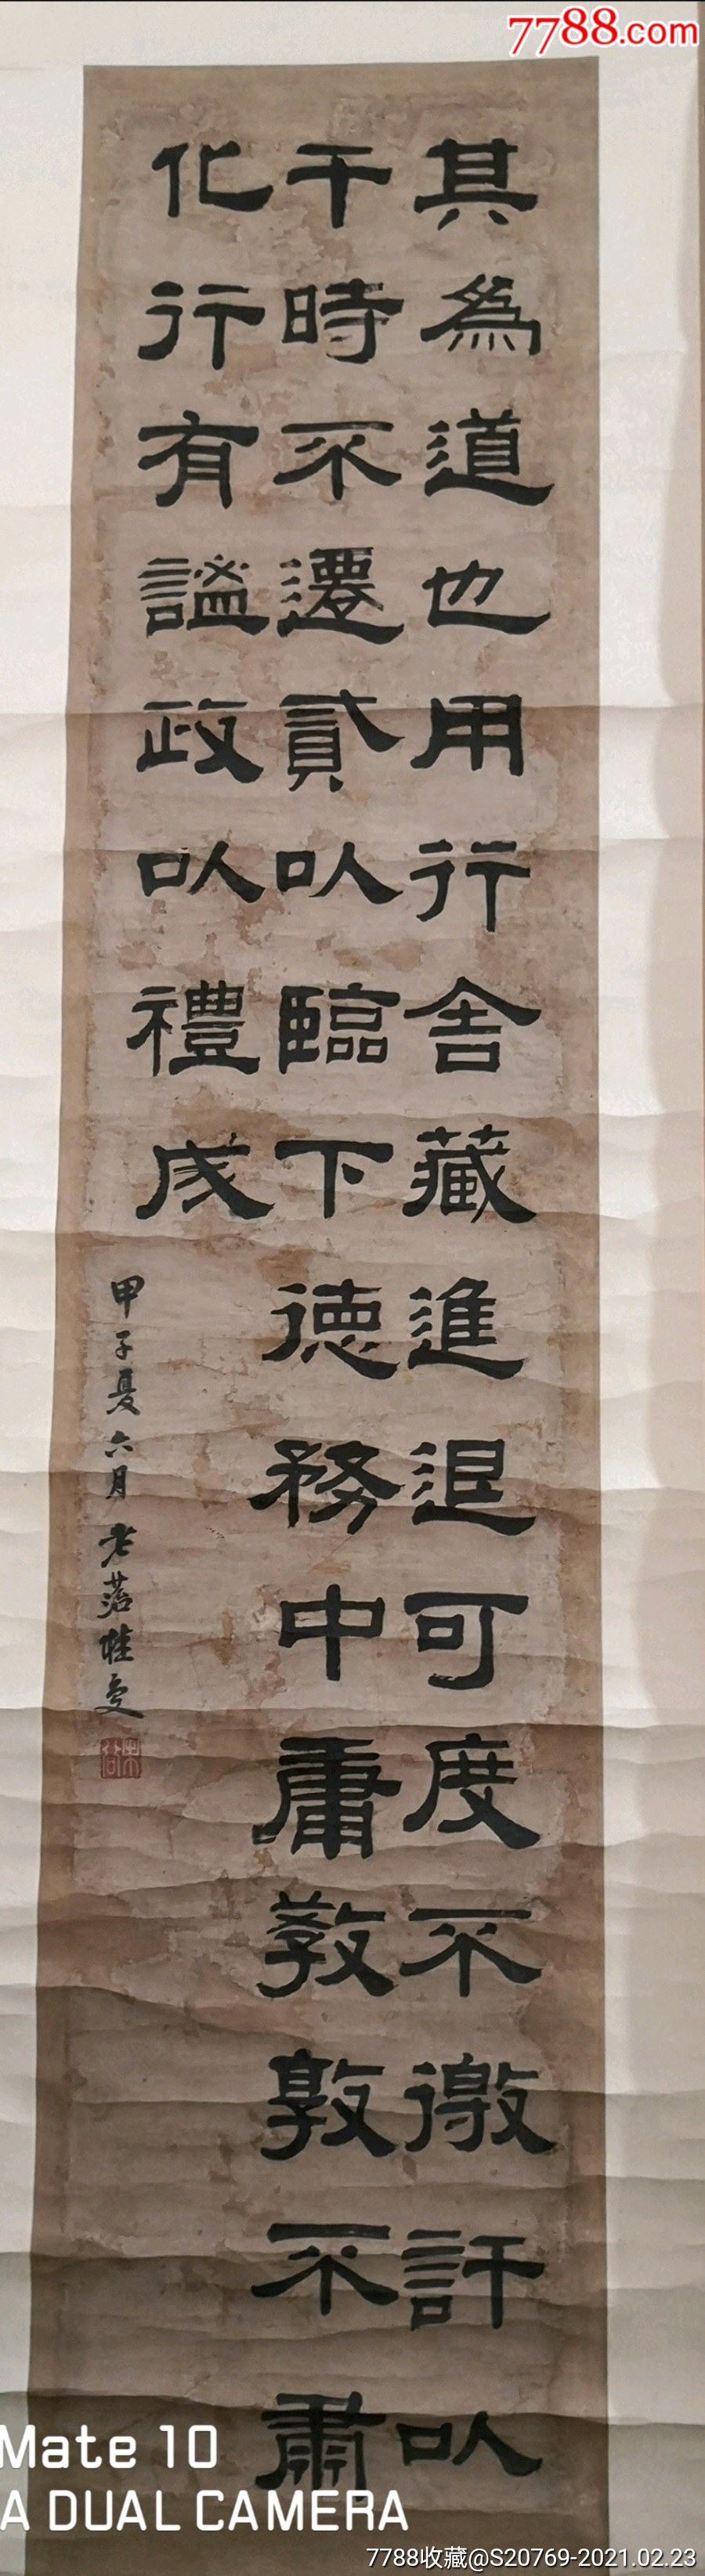 7788.com
其為道也用行舍藏進退可度不徼訐㕥
干時不遷貳㕥臨下德務中庸敎敦不肅
化行有謐政㕥禮成
甲子夏六月老
Mate 10
A DUAL CAMERA
7788收藏@S20769-2021.02.23